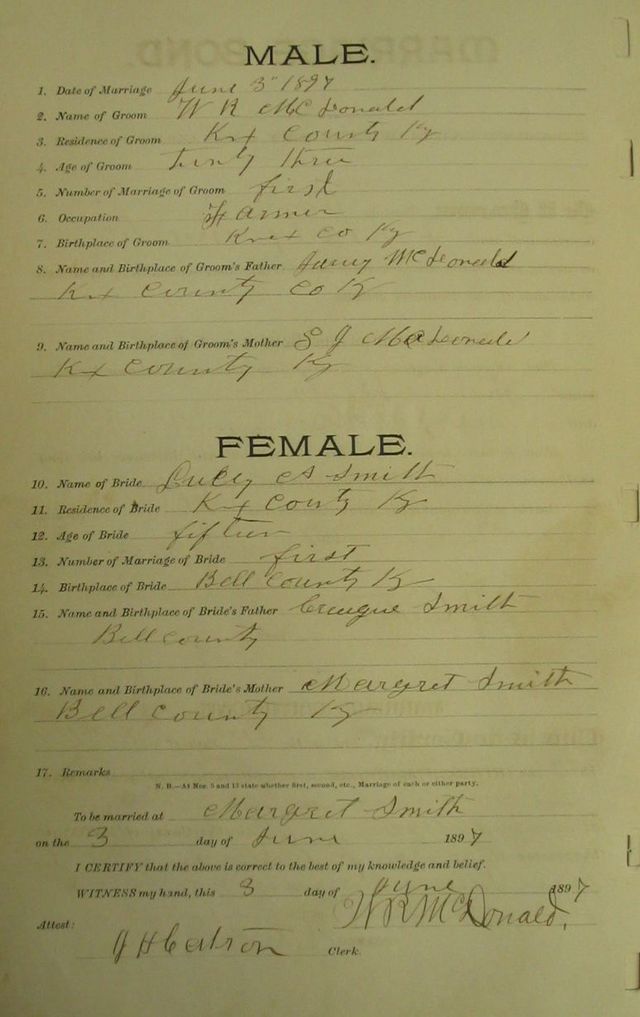 MALE.
1. Date of Marriage June 3" 1897
2. Name of Groom W R McDonald
3. Residence of Groom Kx County Ky
4. Age of Groom twnty three
5. Number of Marriage of Groom first
6. Occupation Farmer
7. Birthplace of Groom Knox Co Ky
8. Name and Birthplace of Groom's Father McDonald
Kx County Co Ky
9. Name and Birthplace of Groom's Mother S J McDonald
Kx County Ky
FEMALE.
10. Name of Bride Lucy A Smith
11. Residence of Bride Kx County Ky
12. Age of Bride fifteen
13. Number of Marriage of Bride first
14. Birthplace of Bride Bell County Ky
15. Name and Birthplace of Bride's Father Smith
Bell county
16. Name and Birthplace of Bride's Mother Margret Smith
Bell County Ky
17. Remarks
N. B.—At Nos. 5 and 13 state whether first, second, etc., Marriage of each or either party.
To be married at Margret Smith
on the 3 day of June 1897
I CERTIFY that the above is correct to the best of my knowledge and belief.
WITNESS my hand, this 3 day of June 1897
W R McDonald,
Attest:
J H Catron Clerk.